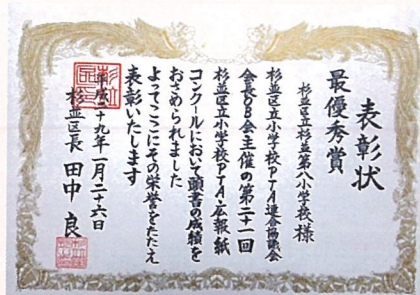 表彰状
最優秀賞
杉並区立杉並第八小学校様
杉並区立小学校PTA連合協議会
会長OB会主催の第二十一回
杉並区立小学校PTA広報紙
コンクールにおいて頭書の成績を
おさめられました
よってここにその栄誉をたたえ
表彰いたします
平成二十九年一月二十六日
杉並区長 田中 良